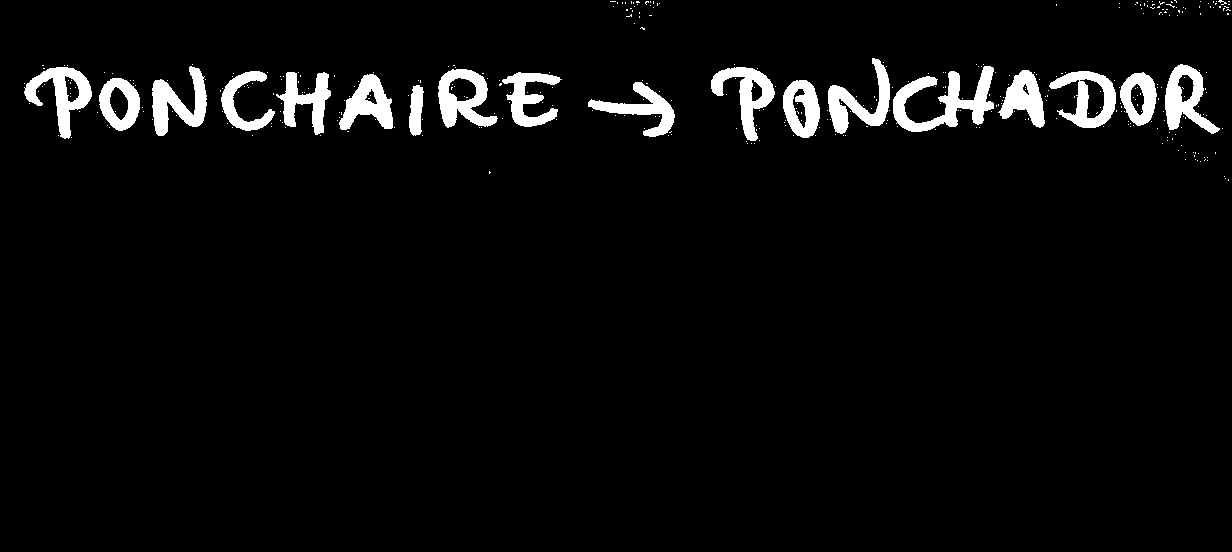 PONCHAIRE → PONCHADOR